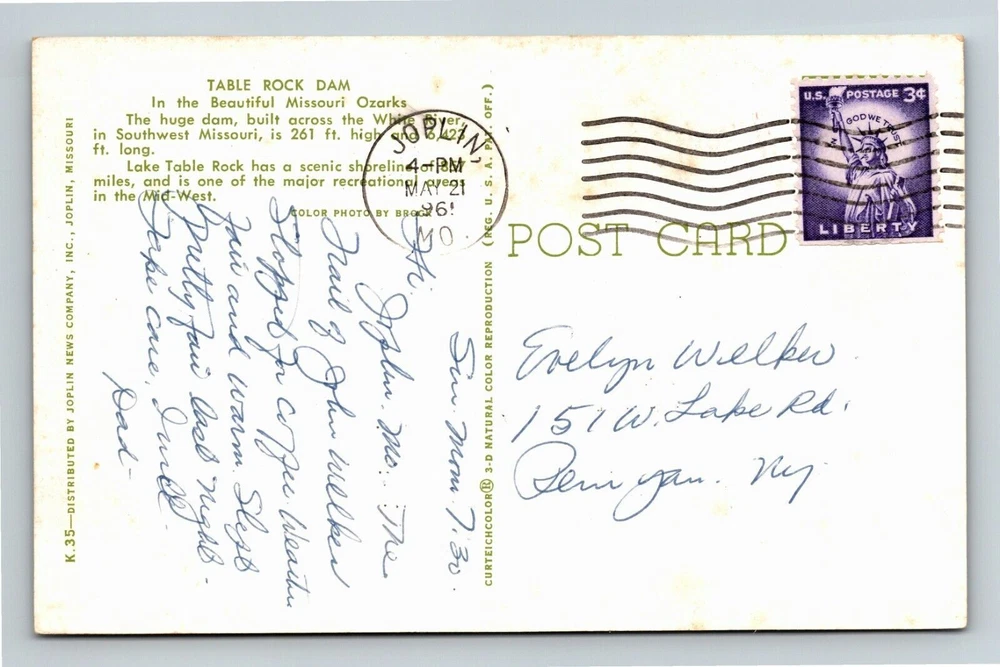 TABLE ROCK DAM
In the Beautiful Missouri Ozarks
The huge dam, built across the White River,
in Southwest Missouri, is 261 ft. high and 6,423
ft. long.
Lake Table Rock has a scenic shoreline of
miles, and is one of the major recreational
in the Mid-West.
COLOR PHOTO BY
K.35—DISTRIBUTED BY JOPLIN NEWS COMPANY, INC., JOPLIN, MISSOURI
CURTEICHCOLOR® 3-D NATURAL COLOR REPRODUCTION (REG. U. S. A. PAT. OFF.)
JOPLIN,
4-PM
MAY 21
1961
MO.
U.S. POSTAGE 3¢
IN GOD WE TRUST
LIBERTY
POST CARD
Sun. Morn. 7:30.
Hi.
Joplin. Mo. The
Trail of John Welker
Stopped for coffee Weather
fair and warm. Slept
pretty fair last night -
Take care. I will.
Dad -
Evelyn Welker
151 W. Lake Rd.
Penn yan. Ny